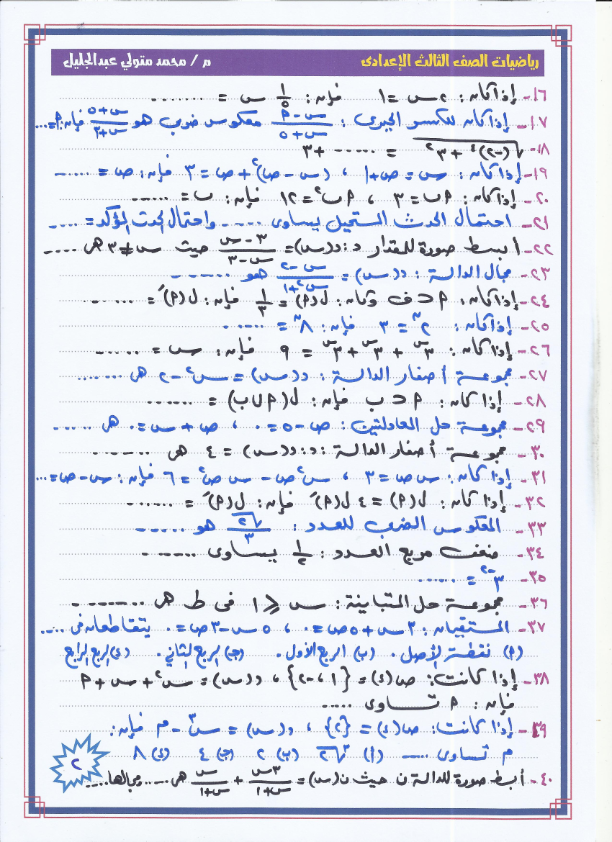 رياضيات الصف الثالث الإعدادى م / محمد متولي عبدالجليل
١٦- إذا كان : ٢س = ١ فإن : ١/٥ س = .......
١٧- إذا كان للكسر الجبرى : (س - ٢)/(س + ٥) معكوس ضربى هو (س + ٥)/(س + ٣) فإن : ٢ = ....
١٨- √((-٢)⁴ + ٣²) = ...... + ٣
١٩- إذا كان : س = ص + ١ ، (س - ص)² + ص = ٣ فإن : ص = ......
٢٠- إذا كان : ٢ب = ٣ ، ٢ب² = ١٢ فإن : ب = ......
٢١- احتمال الحدث المستحيل يساوى ...... واحتمال الحدث المؤكد = ....
٢٢- أبسط صورة للمقدار د : د(س) = (٣ - س)/(س - ٣) حيث س ≠ ٣ هى ....
٢٣- مجال الدالة : د(س) = (س - ٢)/(س² + ١) هو .......
٢٤- إذا كان : ٢ ⊂ ف وكان : ل(٢) = ١/٣ فإن : ل(٢́) = ......
٢٥- إذا كان : ٢ⁿ = ٣ فإن : ٨ⁿ = ......
٢٦- إذا كان : ٣ˢ + ٣ˢ + ٣ˢ = ٩ فإن : س = ......
٢٧- مجموعة أصفار الدالة : د(س) = س² - ٢ هى .......
٢٨- إذا كان : ٢ ⊂ ب فإن : ل(٢ ∪ ب) = ......
٢٩- مجموعة حل المعادلتين : ص - ٥ = ٠ ، ص + س = ٠ هى ......
٣٠- مجموعة أصفار الدالة : د : د(س) = ٤ هى ......
٣١- إذا كان : س ص = ٣ ، س²ص - س ص² = ٦ فإن : س - ص = ...
٣٢- إذا كان : ل(٢) = ٤ ل(٢́) فإن : ل(٢́) = ......
٣٣- المعكوس الضربى للعدد : √٢/٣ هو ......
٣٤- نصف مربع العدد : ١/٢ يساوى ......
٣٥- ٣⁻² = ......
٣٦- مجموعة حل المتباينة : س ⩾ ١ فى ط هى ........
٣٧- المستقيمان : ٢س + ٥ص = ٠ ، ٥س - ٣ص = ٠ يتقاطعان فى ....
(٢) نقطة الأصل . (ب) الربع الأول . (ج) الربع الثانى . (د) الربع الرابع
٣٨- إذا كانت : ص(د) = {١ ، -٢} ، د(س) = س² + س + ٢
فإن : ٢ تساوى ....
٣٩- إذا كانت : ص(د) = {٢} ، د(س) = س³ - م فإن :
م تساوى ..... (٢) ∛٢ (ب) ٢ (ج) ٤ (د) ٨
٤٠- أبسط صورة للدالة ن حيث ن(س) = ٣س/(س + ١) + س/(س + ١) هى ..... ومجالها ....
٢